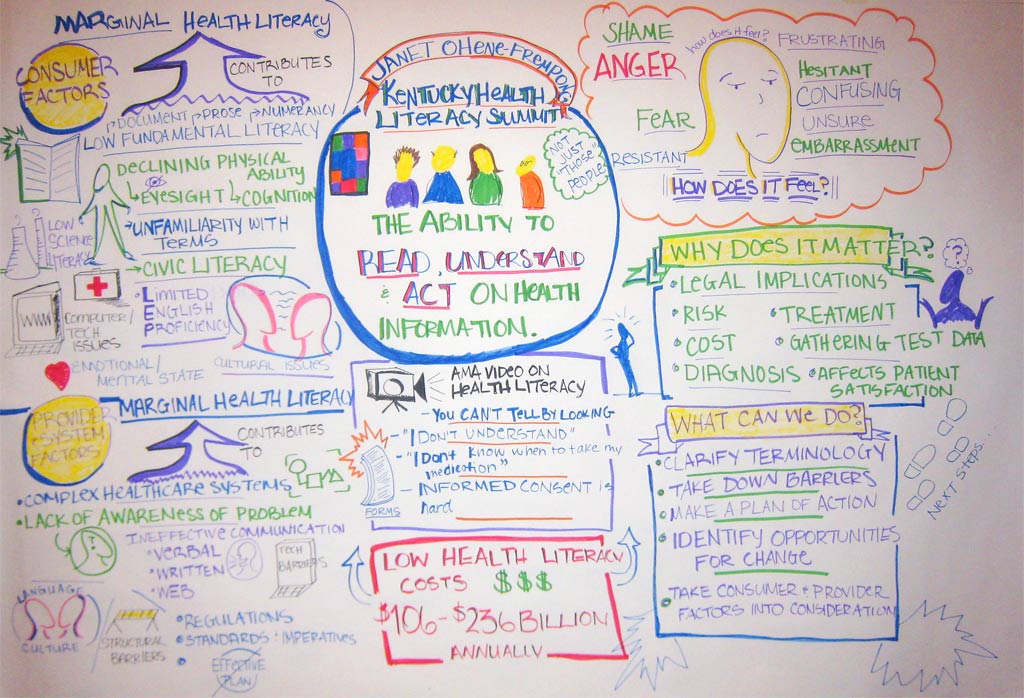 MARGINAL HEALTH LITERACY
CONSUMER
FACTORS
CONTRIBUTES
TO
DOCUMENT PROSE NUMERANCY
LOW FUNDAMENTAL LITERACY
DECLINING PHYSICAL
ABILITY
EYESIGHT COGNITION
UNFAMILIARITY WITH
TERMS
LOW
SCIENCE
LITERACY
CIVIC LITERACY
WWW
COMPUTER/
TECH
ISSUES
LIMITED
ENGLISH
PROFICIENCY
L
E
P
CULTURAL ISSUES
EMOTIONAL/
MENTAL STATE
PROVIDER
+ SYSTEM
FACTORS
MARGINAL HEALTH LITERACY
CONTRIBUTES
TO
COMPLEX HEALTHCARE SYSTEMS
LACK OF AWARENESS OF PROBLEM
INEFFECTIVE COMMUNICATION
VERBAL
WRITTEN
WEB
TECH
BARRIERS
LANGUAGE
CULTURE
STRUCTURAL
BARRIERS
REGULATIONS
STANDARDS : IMPERATIVES
EFFECTIVE
PLAN
JANET OHENE-FREMPONG
KENTUCKY HEALTH
LITERACY SUMMIT
NOT
JUST
"THOSE"
PEOPLE
THE ABILITY TO
READ, UNDERSTAND
& ACT ON HEALTH
INFORMATION.
AMA VIDEO ON
HEALTH LITERACY
- YOU CAN'T TELL BY LOOKING
- "I DON'T UNDERSTAND"
- "I DON'T KNOW WHEN TO TAKE MY
medication"
- INFORMED CONSENT is
hard
FORMS
LOW HEALTH LITERACY
COSTS $$$
$106 - $236 BILLION
ANNUALLY
SHAME
ANGER
FEAR
RESISTANT
how does it feel?
FRUSTRATING
HESITANT
CONFUSING
UNSURE
EMBARRASSMENT
HOW DOES IT FEEL?
WHY DOES IT MATTER?
?
LEGAL IMPLICATIONS
RISK
TREATMENT
COST
GATHERING TEST DATA
DIAGNOSIS
AFFECTS PATIENT
SATISFACTION
WHAT CAN WE DO?
CLARIFY TERMINOLOGY
TAKE DOWN BARRIERS
MAKE A PLAN OF ACTION
IDENTIFY OPPORTUNITIES
FOR CHANGE
TAKE CONSUMER + PROVIDER
FACTORS INTO CONSIDERATION
NEXT STEPS...